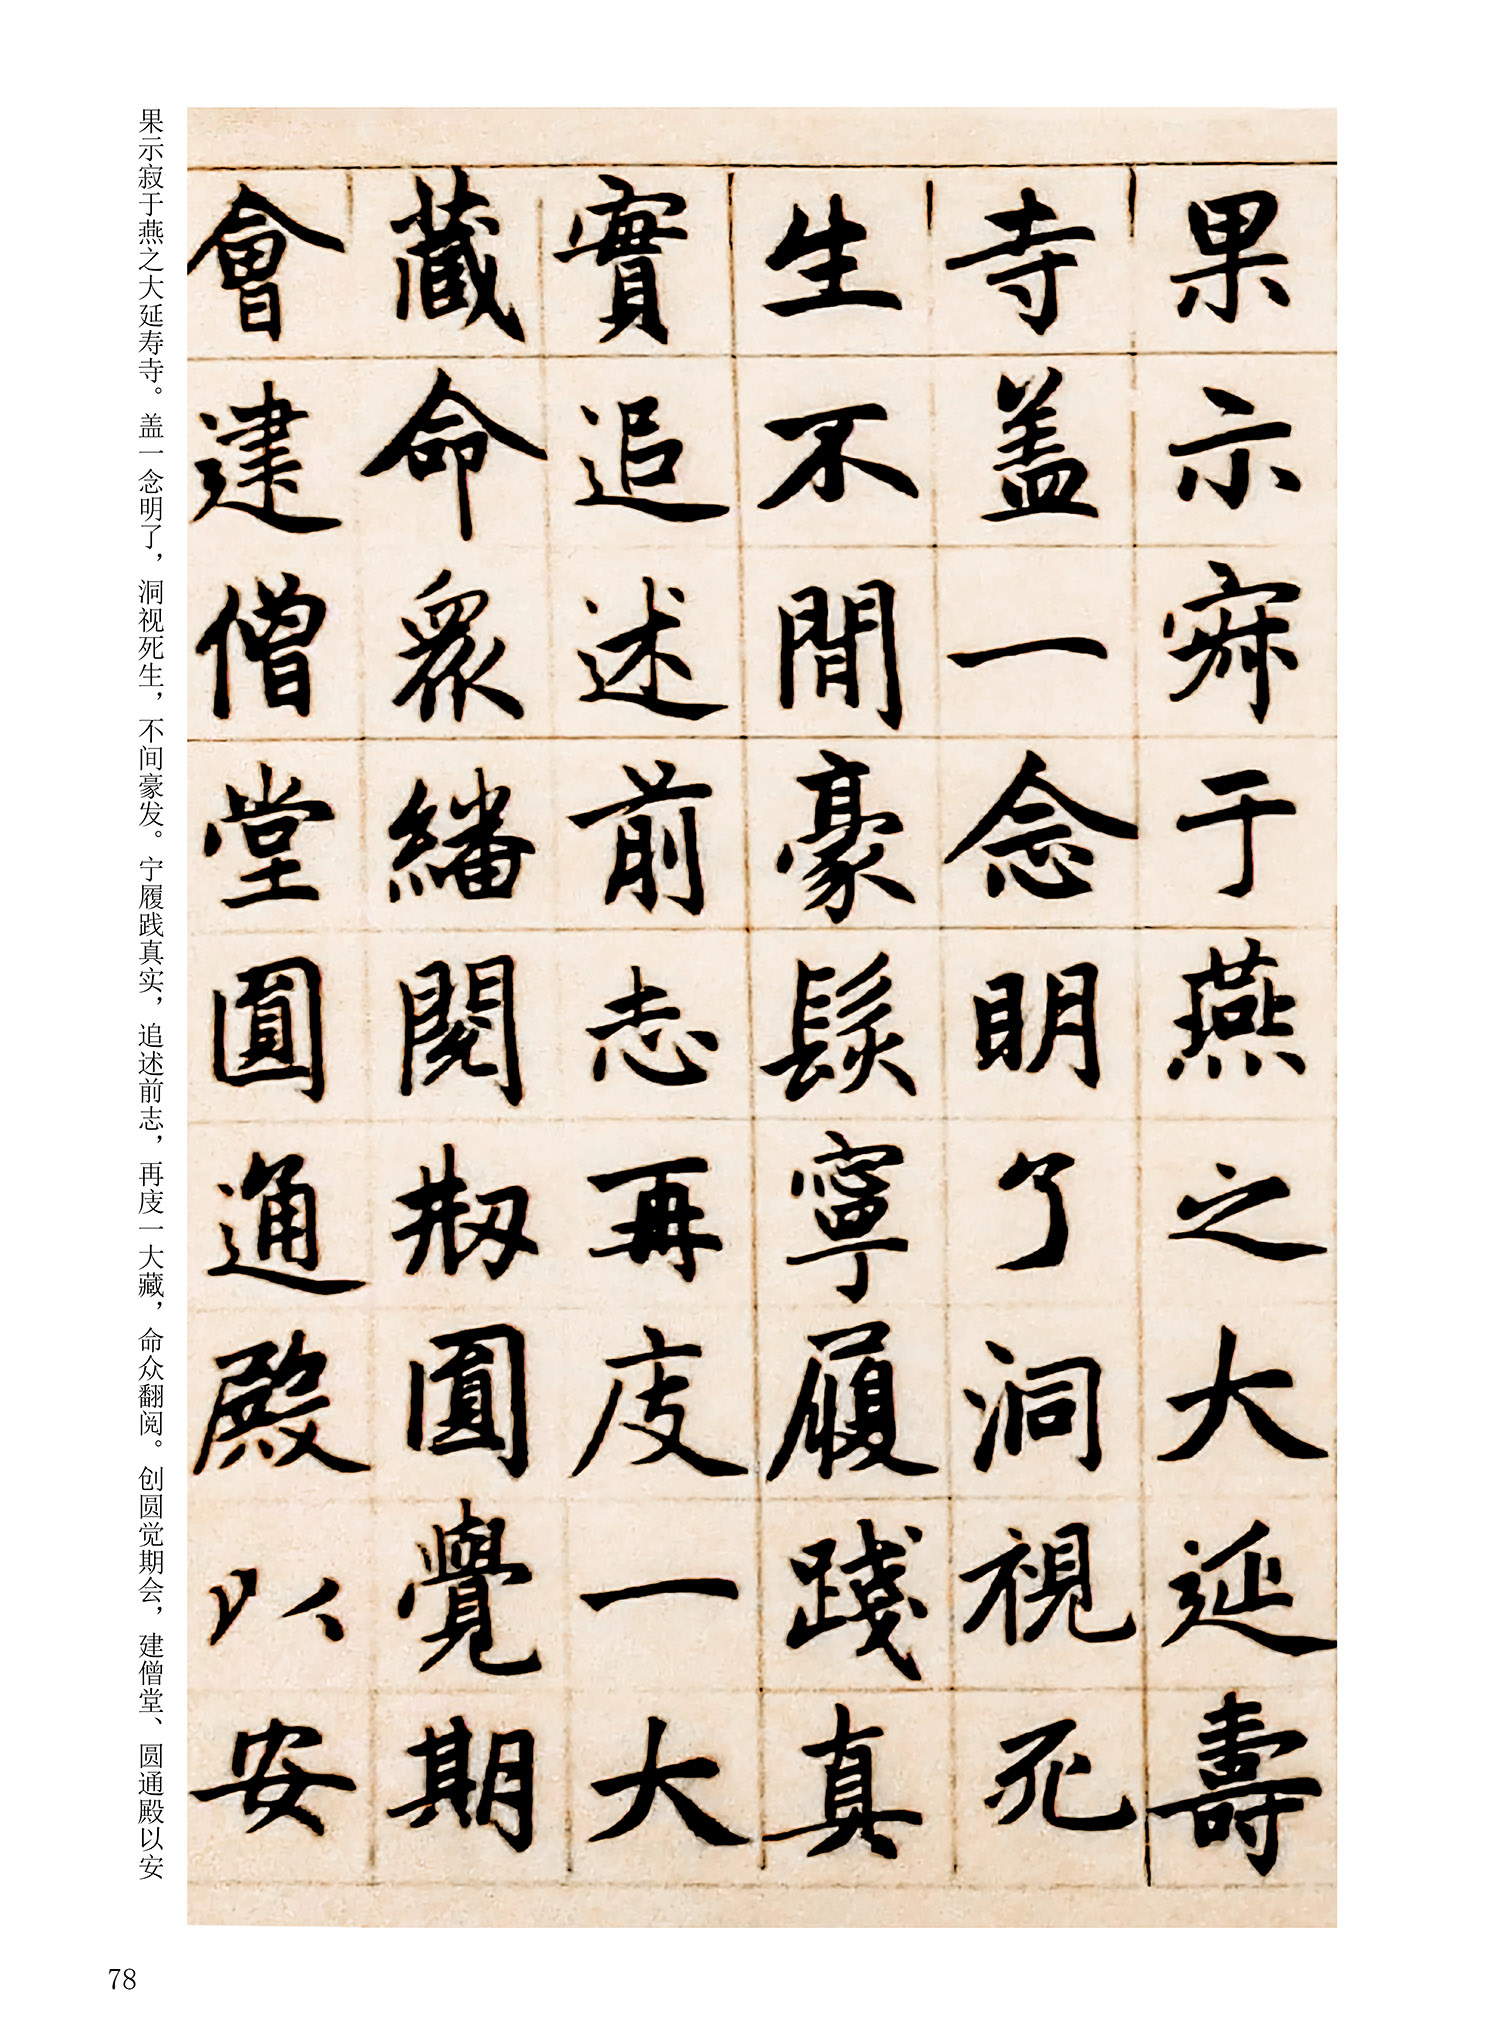 果示㝛于燕之大延壽
寺盖一念明了洞視死
生不間豪髮寧履踐真
實追述前志再庋一大
藏命眾繙閱剏圓覺期
會建僧堂圓通殿以安
果示寂于燕之大延寿寺。盖一念明了，洞视死生，不间豪发。宁履践真实，追述前志，再庋一大藏，命众翻阅。创圆觉期会，建僧堂、圆通殿以安
78